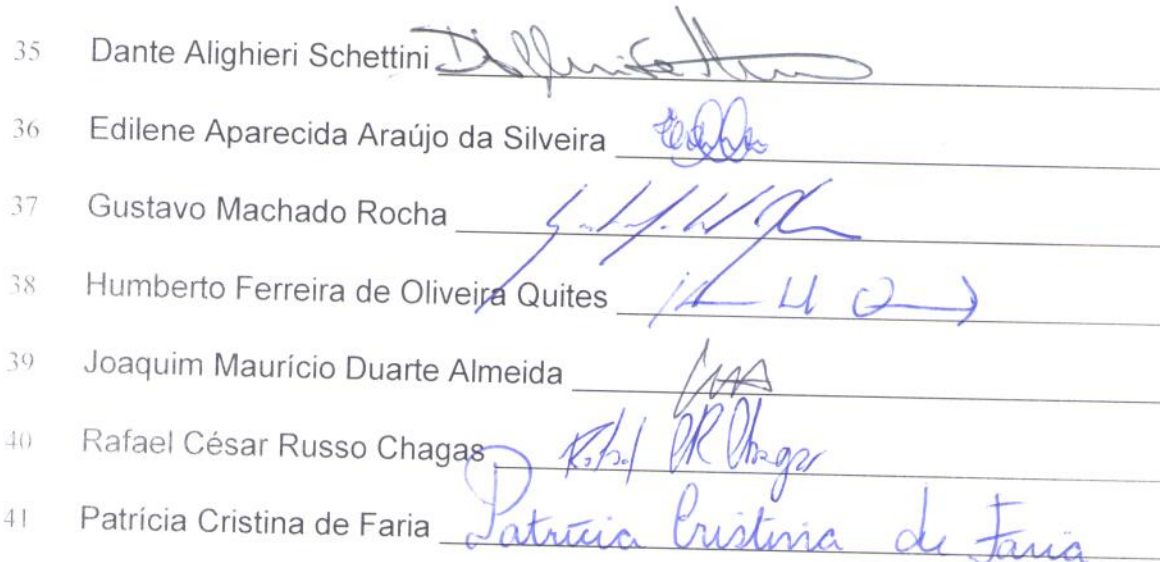 35 Dante Alighieri Schettini
36 Edilene Aparecida Araújo da Silveira
37 Gustavo Machado Rocha
38 Humberto Ferreira de Oliveira Quites
39 Joaquim Maurício Duarte Almeida
40 Rafael César Russo Chagas Rafael CR Chagas
41 Patrícia Cristina de Faria Patrícia Cristina de Faria